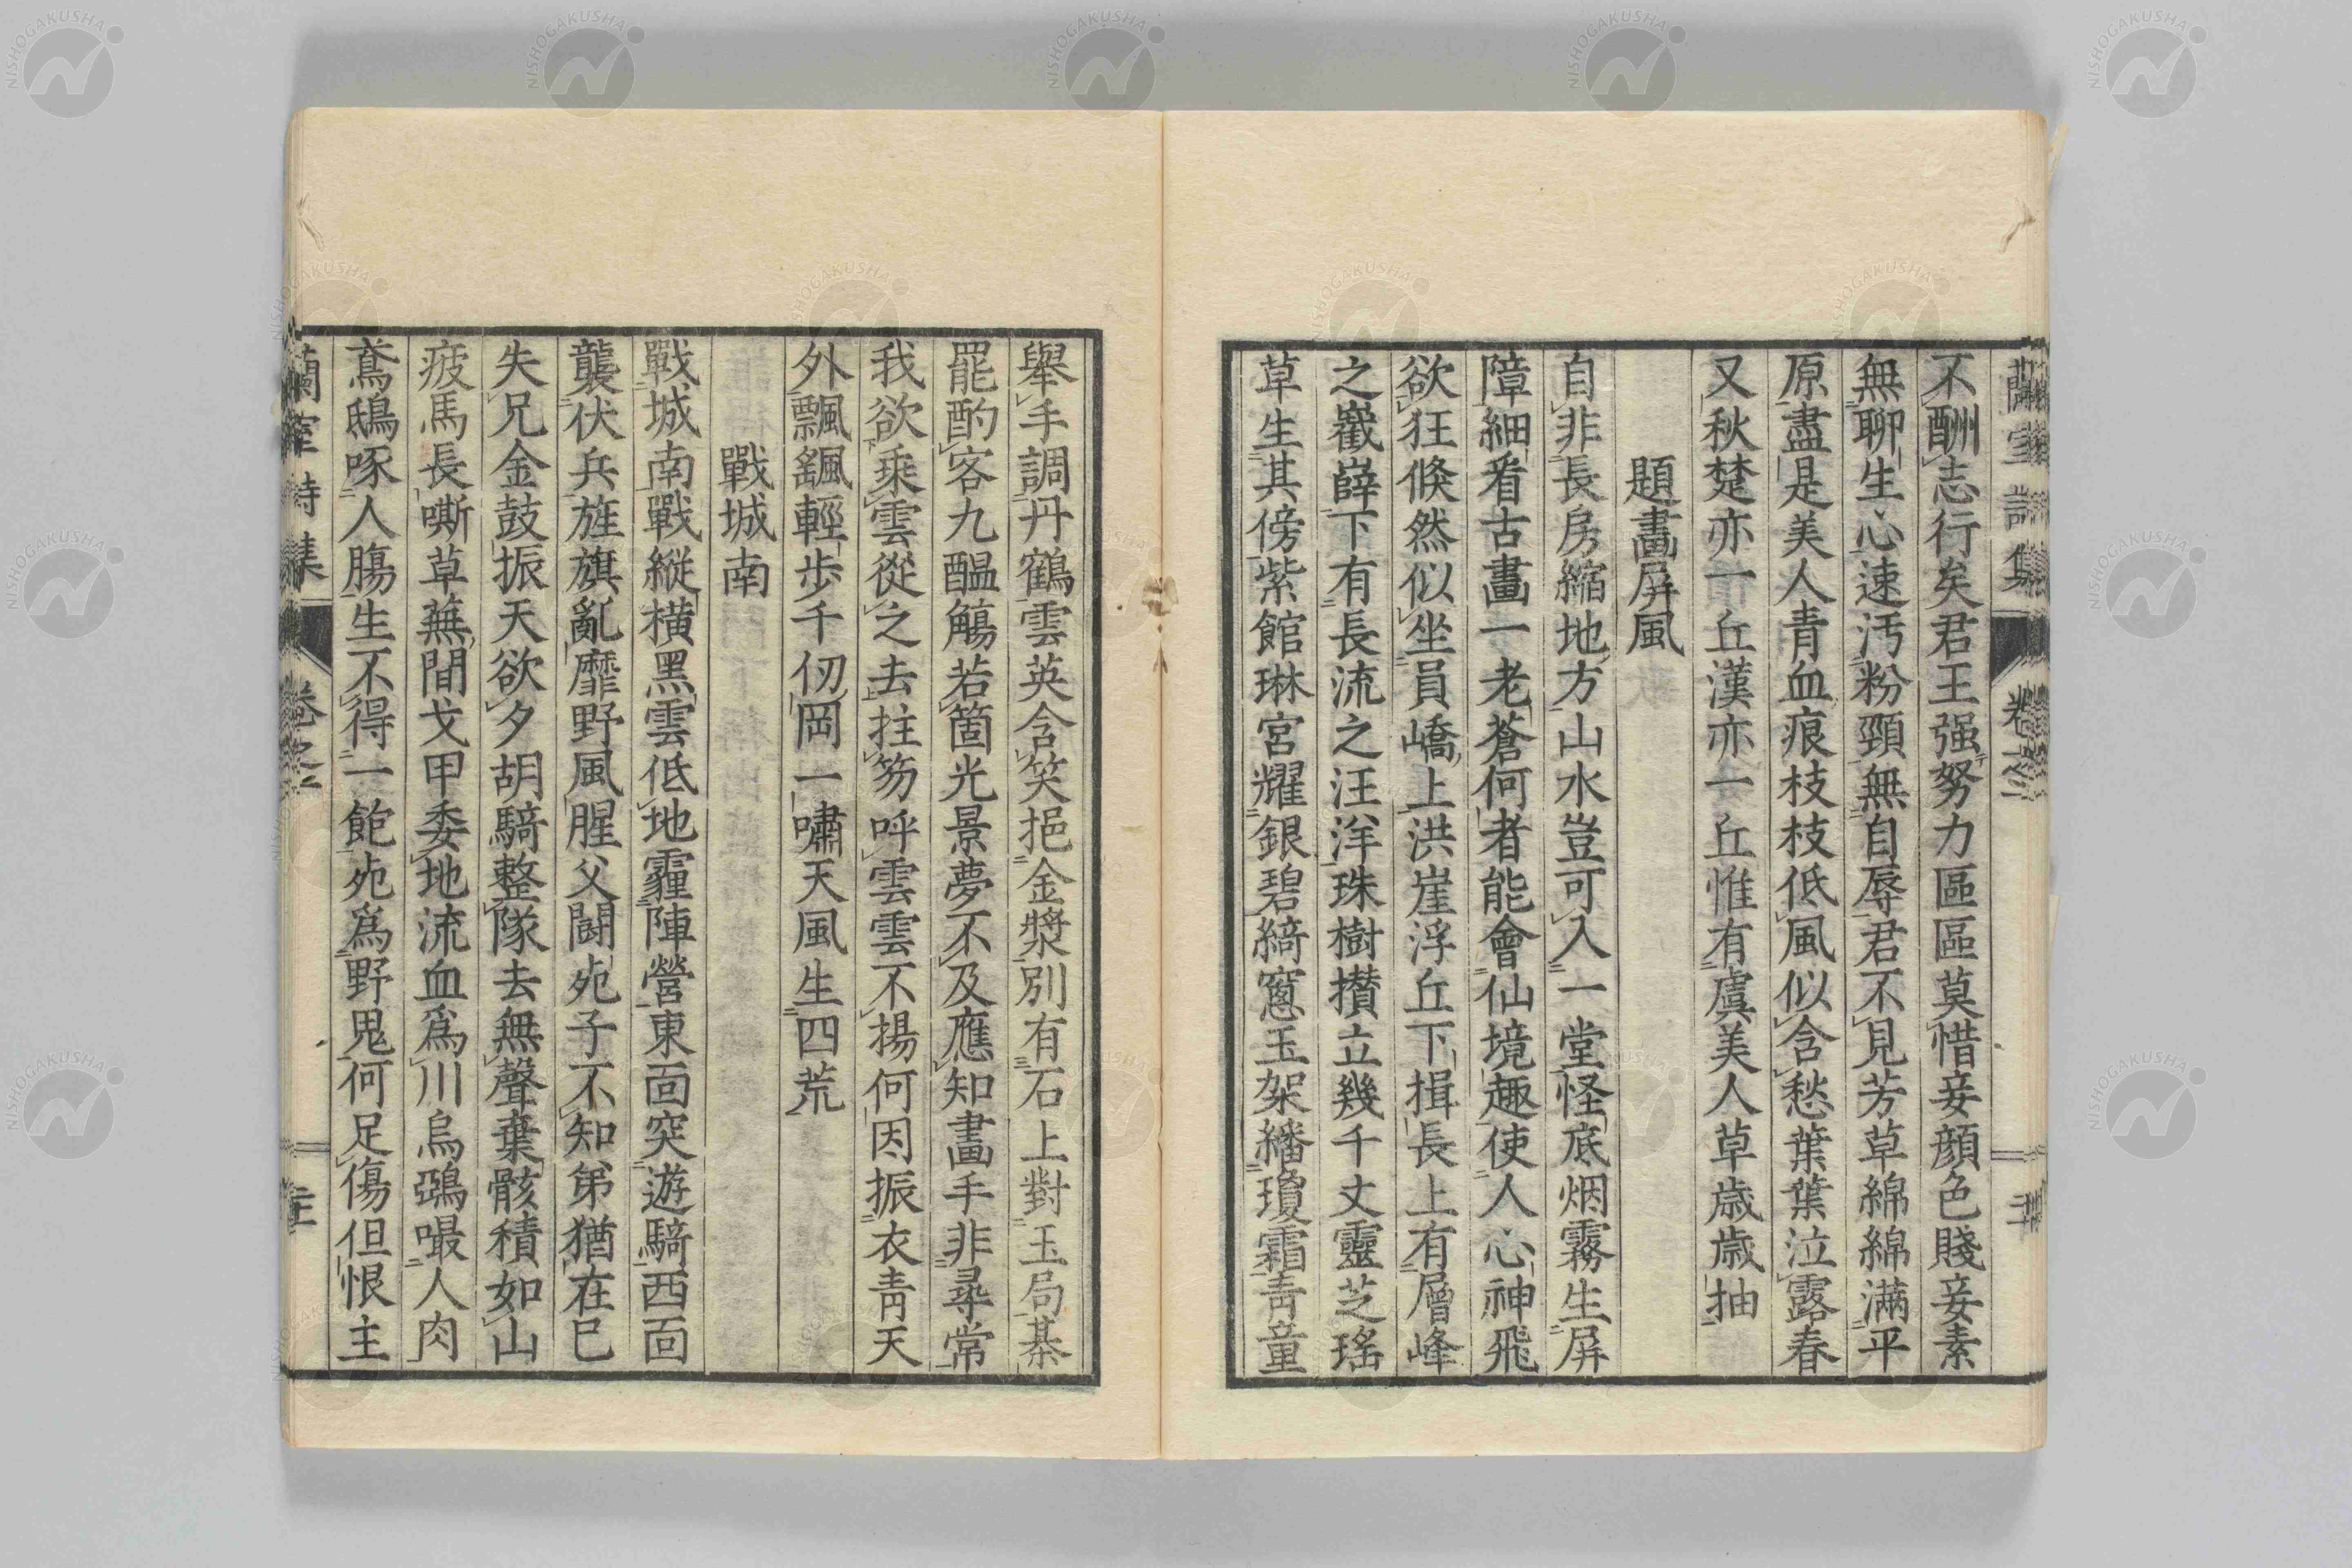 不酬志行矣君王强努力區區莫惜妾顏色賤妾素
無聊生心速汚粉頸無自辱君不見芳草綿綿滿平
原盡是美人青血痕枝枝低風似含愁葉葉泣露春
又秋楚亦一丘漢亦一丘惟有虞美人草歳歳抽
題畫屏風
自非長房縮地方山水豈可入一堂怪底烟霧生屏
障細看古畫一老蒼何者能會仙境趣使人心神飛
欲狂倐然似坐員嶠上洪崖浮丘下揖長上有層峰
之巀嶭下有長流之汪洋珠樹攢立幾千丈靈芝瑤
草生其傍紫館琳宮耀銀碧綺窻玉架繙瓊霜青童
擧手調丹鶴雲英含笑挹金漿別有石上對玉局棊
罷酌客九醞觴若箇光景夢不及應知畫手非尋常
我欲乘雲從之去拄笏呼雲雲不揚何因振衣靑天
外飄颻輕歩千仭岡一嘯天風生四荒
戰城南
戰城南戰縱橫黑雲低地霾陣營東面突遊騎西面
襲伏兵旌旗亂靡野風腥父鬪死子不知弟猶在已
失兄金鼓振天欲夕胡騎整隊去無聲棄骸積如山
疲馬長嘶草蕪間戈甲委地流血爲川烏鵶嘬人肉
鳶鴟啄人腸生不得一飽死爲野鬼何足傷但恨主
蘭室詩集 卷之二
NISHOGAKUSHA